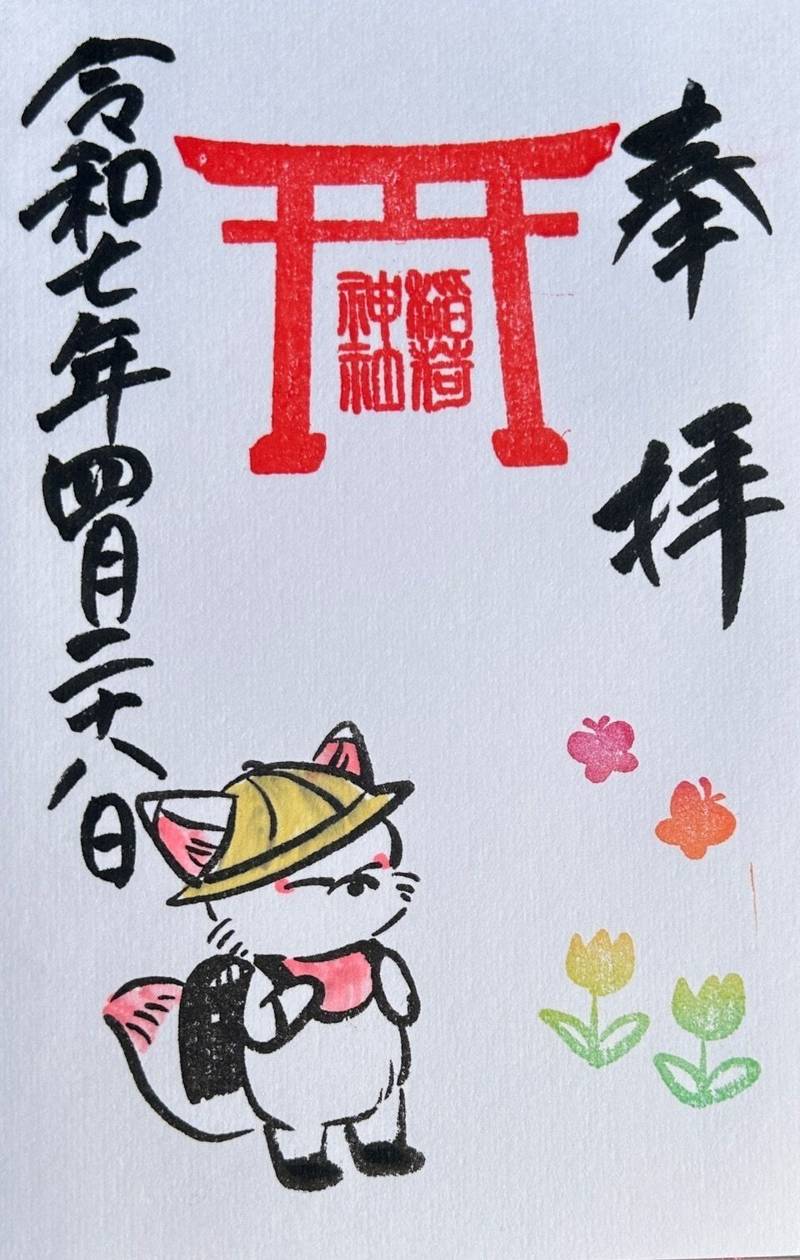 奉拝
稲荷
神社
令和七年四月二十八日